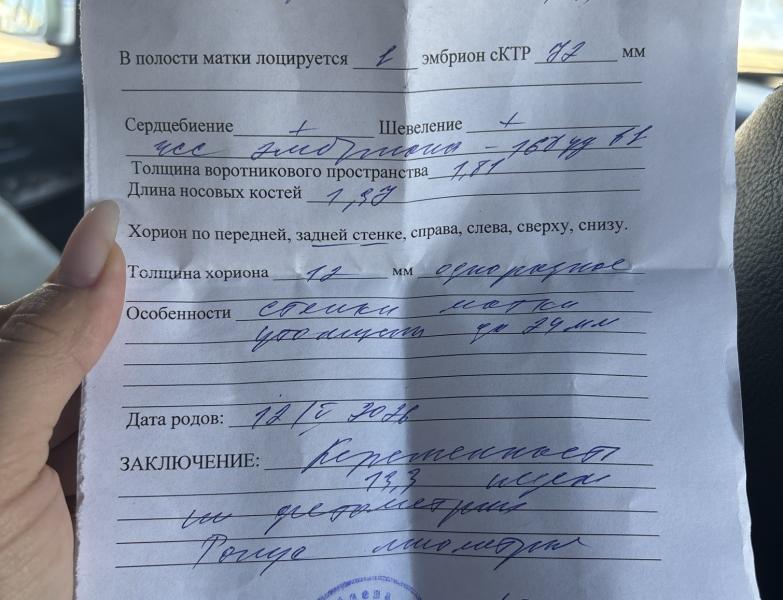 В полости матки лоцируется 1 эмбрион сКТР 72 мм
Сердцебиение + Шевеление +
чсс эмбриона - 160 уд в 1
Толщина воротникового пространства 1,81
Длина носовых костей 1,37
Хорион по передней, задней стенке, справа, слева, сверху, снизу.
Толщина хориона 12 мм однородное
Особенности стенки матки
утолщены до 24 мм
Дата родов: 12/V 2026
ЗАКЛЮЧЕНИЕ: Беременность
13,3 недель
по фетометрии
Тонус миометрия